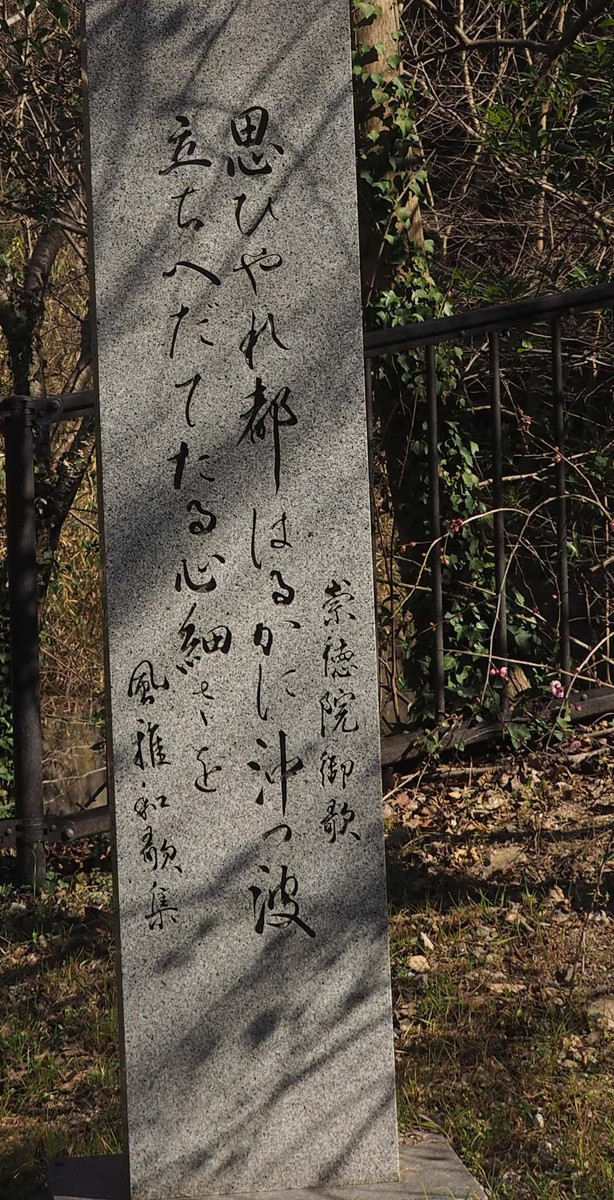 崇徳院御歌
思ひやれ都はるかに沖つ波
立ちへだてたる心細さを
風雅和歌集